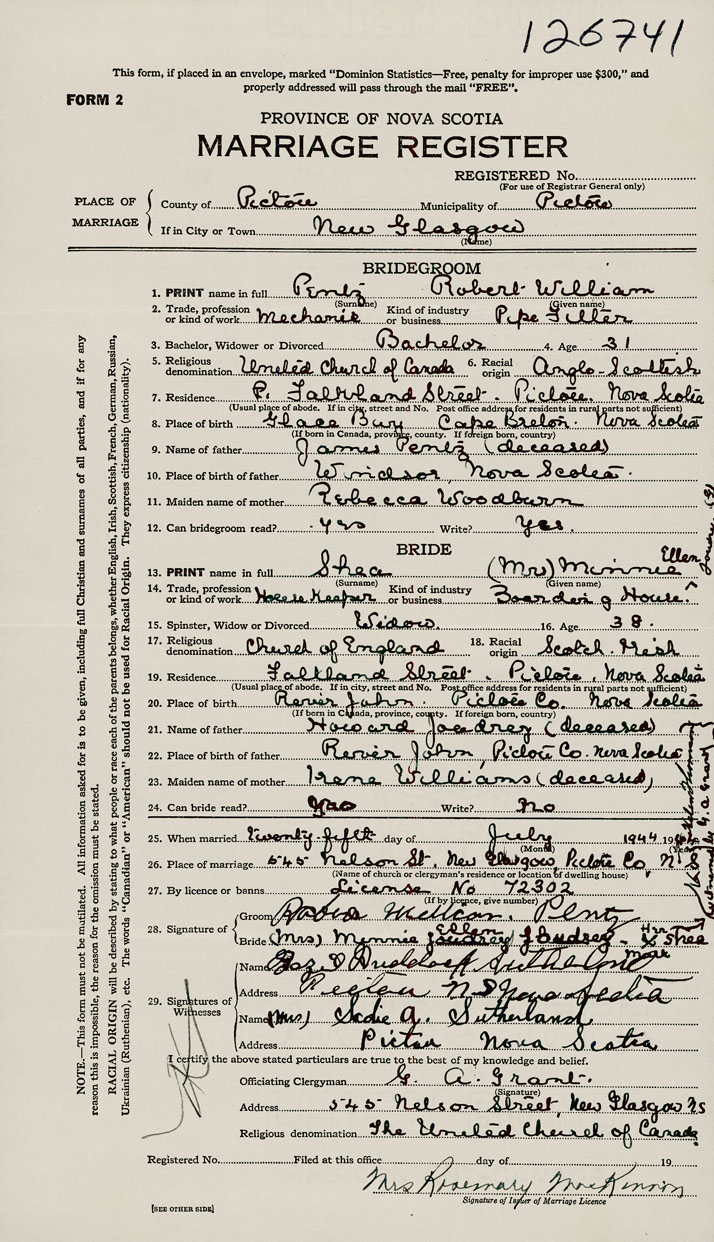 126741
This form, if placed in an envelope, marked "Dominion Statistics—Free, penalty for improper use $300," and
properly addressed will pass through the mail "FREE".
FORM 2
PROVINCE OF NOVA SCOTIA
MARRIAGE REGISTER
REGISTERED No.
(For use of Registrar General only)
PLACE OF MARRIAGE
County of Pictou Municipality of Pictou
If in City or Town New Glasgow
(Name)
BRIDEGROOM
1. PRINT name in full Pentz Robert William
(Surname) (Given name)
2. Trade, profession or kind of work Mechanic Kind of industry or business Pipe Fitter
3. Bachelor, Widower or Divorced Bachelor 4. Age 31
5. Religious denomination United Church of Canada 6. Racial origin Anglo-Scottish
7. Residence P. Falkland Street. Pictou. Nova Scotia
(Usual place of abode. If in city, street and No. Post office address for residents in rural parts not sufficient)
8. Place of birth Glace Bay Cape Breton. Nova Scotia
(If born in Canada, province, county. If foreign born, country)
9. Name of father James Pentz (deceased)
10. Place of birth of father Windsor, Nova Scotia.
11. Maiden name of mother Rebecca Woodburn
12. Can bridegroom read? yes Write? Yes.
BRIDE
Ellen
13. PRINT name in full Shea (Mrs) Minnie ^
(Surname) (Given name)
14. Trade, profession or kind of work House Keeper Kind of industry or business Boarding House.
15. Spinster, Widow or Divorced Widow. 16. Age 38.
17. Religious denomination Church of England 18. Racial origin Scotch-Irish
19. Residence Falkland Street. Pictou, Nova Scotia
(Usual place of abode. If in city, street and No. Post office address for residents in rural parts not sufficient)
20. Place of birth River John. Pictou Co. Nova Scotia
(If born in Canada, province, county. If foreign born, country)
21. Name of father Howard Joudrey (deceased)
22. Place of birth of father River John, Pictou Co. Nova Scotia
23. Maiden name of mother Irene Williams (deceased)
24. Can bride read? Write? No
25. When married Twenty-fifth day of July 1944 19
(Month) (Year)
26. Place of marriage 545 Nelson St. New Glasgow, Pictou Co, N.S.
(Name of church or clergyman's residence or location of dwelling house)
27. By licence or banns License No 72302
(If by licence, give number)
28. Signature of
Groom William. Pentz
Ellen Her
Bride (Mrs) Mynnie Joudrey X Shea
Mark
29. Signatures of Witnesses
Name Sutherland
Address Pictou N.S Nova Scotia
Name (Mrs) Sadie A. Sutherland
Address Pictou Nova Scotia
I certify the above stated particulars are true to the best of my knowledge and belief.
Officiating Clergyman G. A. Grant.
(Signature)
Address 545 Nelson Street, New Glasgow NS
Religious denomination The United Church of Canada
Registered No. Filed at this office day of 19
Mrs Rosemary MacKinnon
Signature of Issuer of Marriage Licence
[SEE OTHER SIDE]
NOTE.—This form must not be mutilated. All information asked for is to be given, including full Christian and surnames of all parties, and if for any
reason this is impossible, the reason for the omission must be stated.
RACIAL ORIGIN will be described by stating to what people or race each of the parents belongs, whether English, Irish, Scottish, French, German, Russian,
Ukrainian (Ruthenian), etc. The words "Canadian" or "American" should not be used for Racial Origin. They express citizenship (nationality).